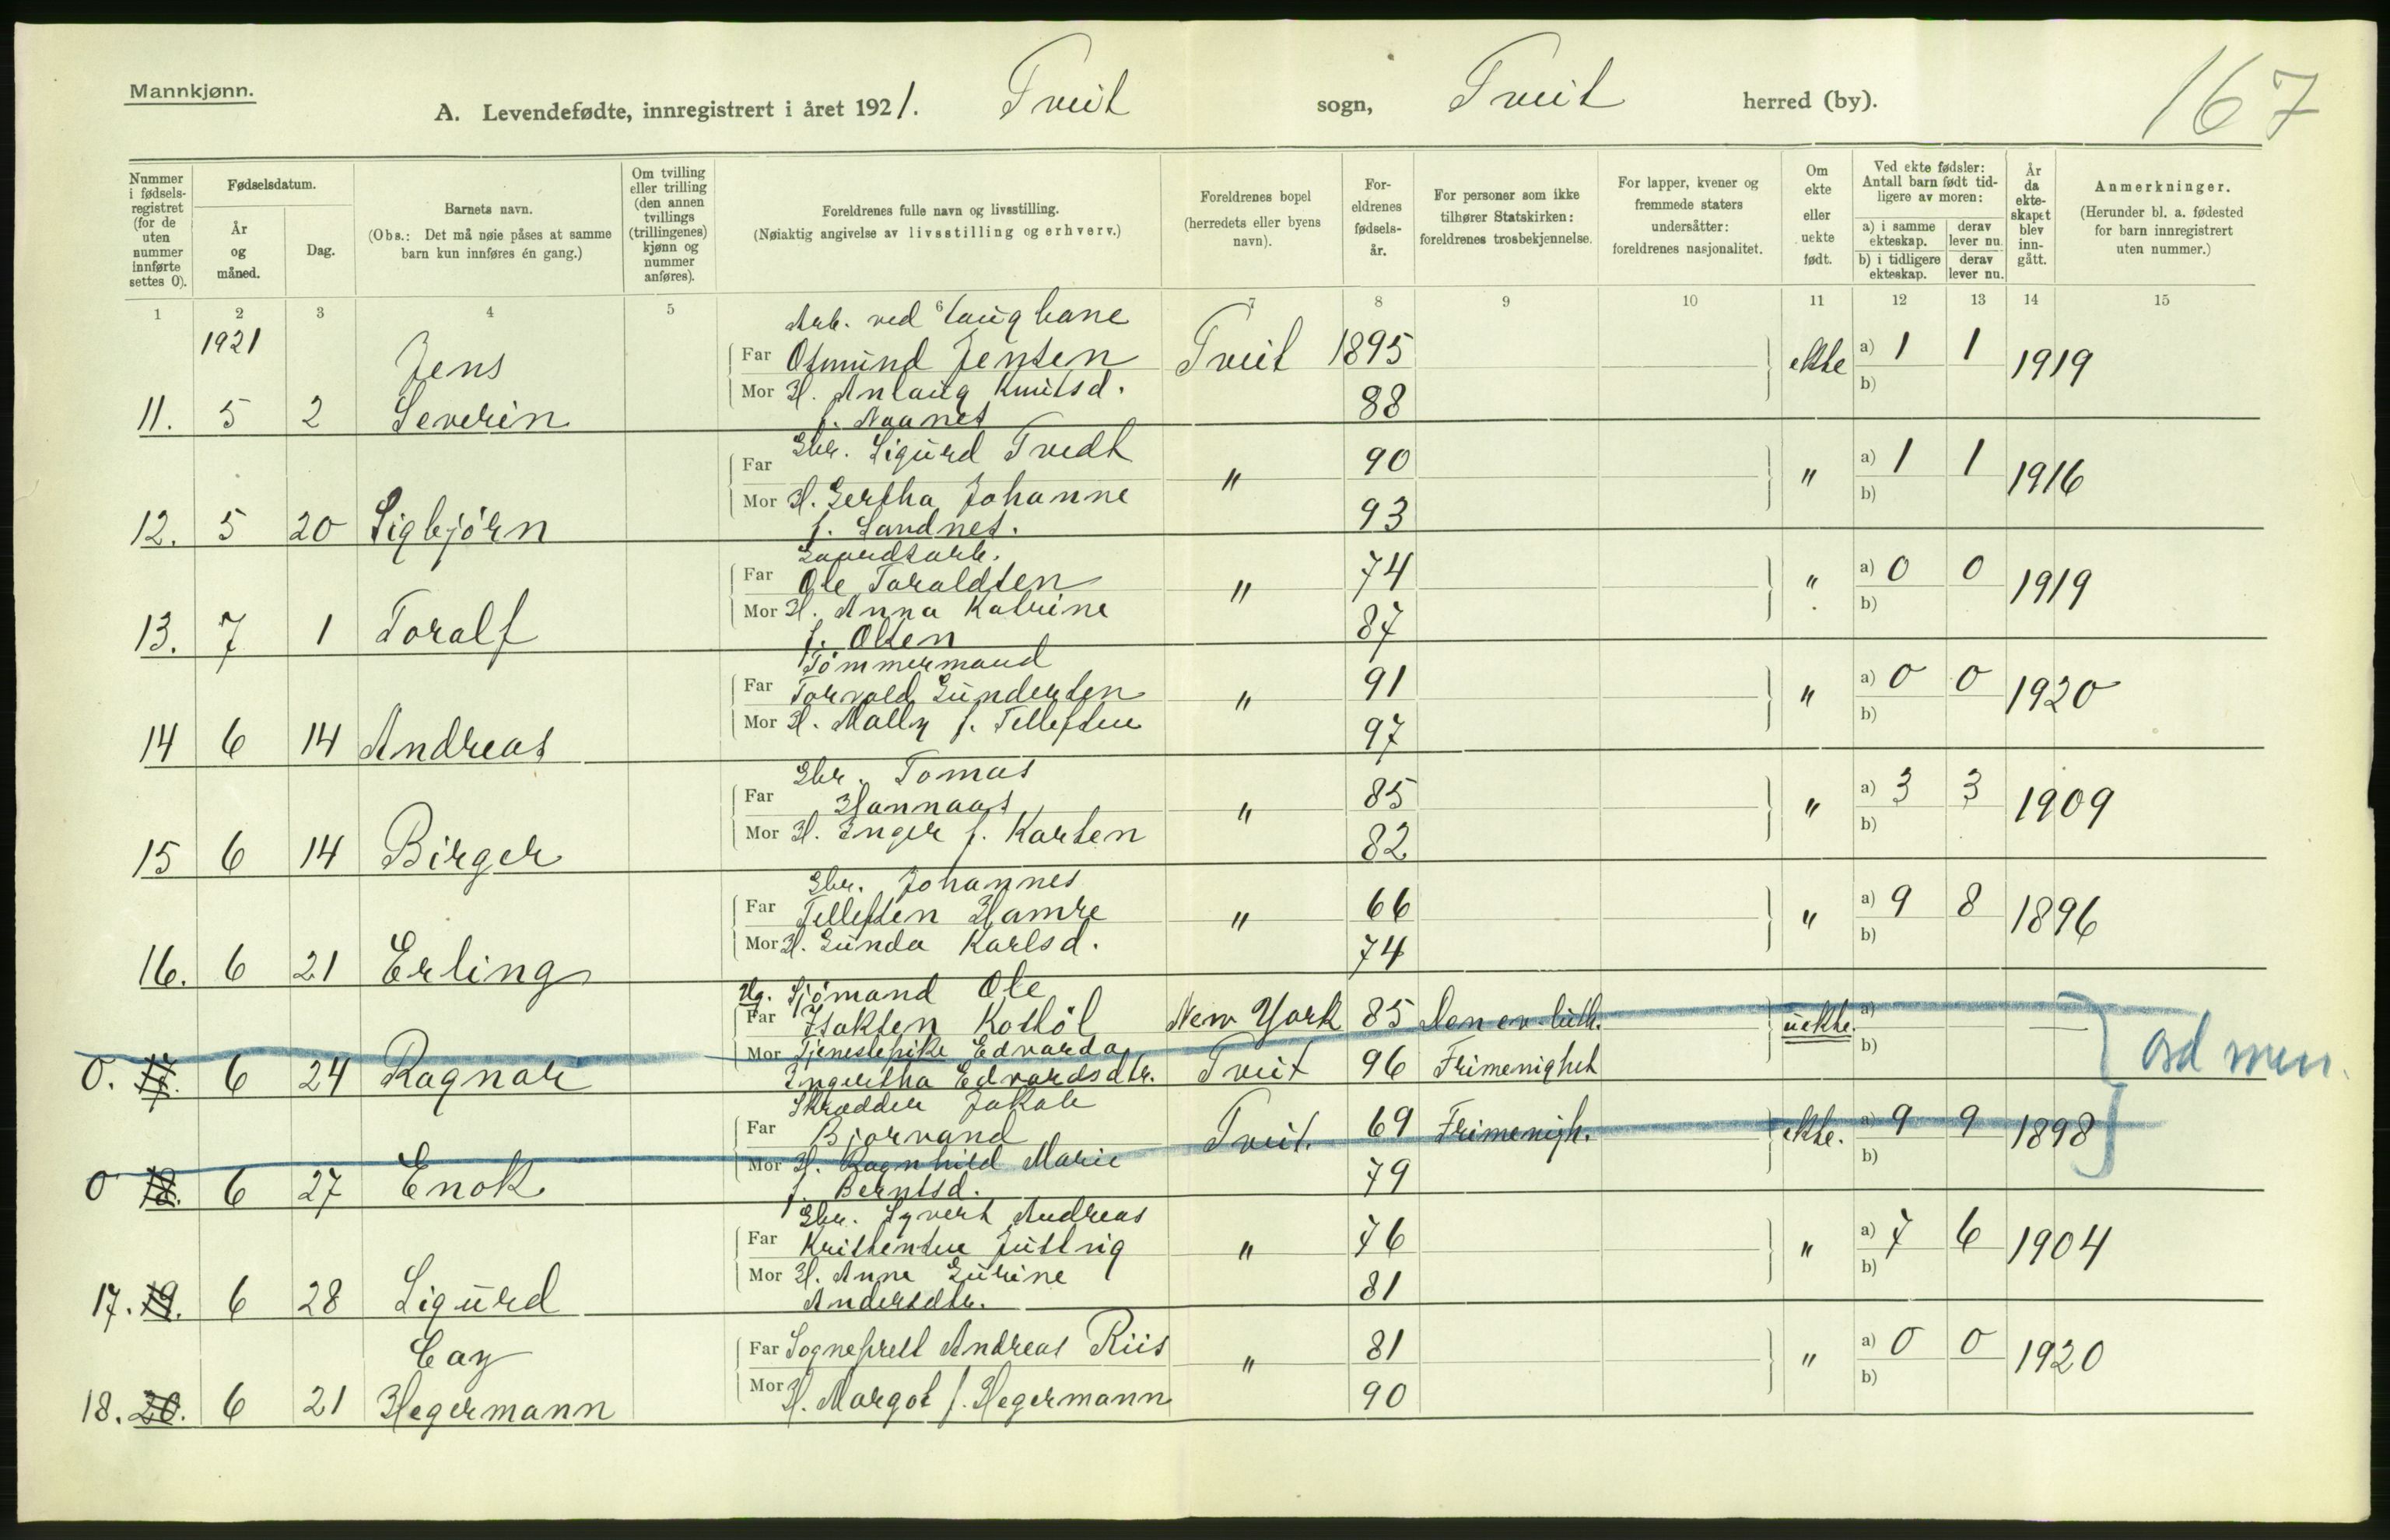 Mannkjønn.
A. Levendefødte, innregistrert i året 1921. Tveit sogn, Tveit herred (by).
167
Nummer i fødsels-registret (for de uten nummer innførte settes 0).
Fødselsdatum.
År og måned.
Dag.
Barnets navn.
(Obs.: Det må nøie påses at samme barn kun innføres én gang.)
Om tvilling eller trilling (den annen tvillings (trillingenes) kjønn og nummer anføres).
Foreldrenes fulle navn og livsstilling.
(Nøiaktig angivelse av livsstilling og erhverv.)
Foreldrenes bopel (herredets eller byens navn).
For-eldrenes fødsels-år.
For personer som ikke tilhører Statskirken: foreldrenes trosbekjennelse.
For lapper, kvener og fremmede staters undersåtter: foreldrenes nasjonalitet.
Om ekte eller uekte født.
Ved ekte fødsler: Antall barn født tid-ligere av moren:
a) i samme ekteskap. derav lever nu.
b) i tidligere ekteskap. derav lever nu.
År da ekte-skapet blev inn-gått.
Anmerkninger.
(Herunder bl. a. fødested for barn innregistrert uten nummer.)
1 2 3 4 5 6 7 8 9 10 11 12 13 14 15
1921
Arb. ved Taugbane
Jens Far Osmund Jensen Tveit 1895 ekte a) 1 1 1919
Mor H. Anlaug Knutsd. b)
11. 5 2 Severin f. Naanes 88
Far Gbr. Sigurd Tvedt " 90 " a) 1 1 1916
Mor H. Gertha Johanne b)
12. 5 20 Sigbjørn f. Sandnes. 93
Gaardsarb.
Far Ole Taraldsen " 74 " a) 0 0 1919
Mor H. Anna Katrine b)
13. 7 1 Toralf f. Olsen 87
Tømmermand
Far Torvald Gundersen " 91 " a) 0 0 1920
Mor H. Mally f. Tellefsen b)
14 6 14 Andreas 97
Gbr. Tomas
Far Hannaas " 85 " a) 3 3 1909
Mor H. Inger f. Karsen b)
15 6 14 Birger 82
Gbr. Johannes
Far Tellefsen Hamre " 66 " a) 9 8 1896
Mor H. Gunda Karlsd. b)
16. 6 21 Erling 74
Ug. Sjømand Ole
Far Isaksen Kostøl New York 85 Den ev. luth. uekte. a)
Mor Tjenestepike Edvarda b)
0. 17. 6 24 Ragnar Ingertha Edvardsdtr. Tveit 96 Frimenighet
Skrædder Jakob
Far Bjorvand Tveit. 69 Frimenigh. ekte. a) 9 9 1898
Mor H. Ragnhild Marie b)
0 18. 6 27 Enok f. Berntsd. 79
Gbr. Syvert Andreas
Far Kristensen Justvig " 76 " a) 7 6 1904
Mor H. Anne Gurine b)
17. 19. 6 28 Sigurd Andersdtr. 81
Cay Far Sogneprest Andreas Riis " 81 " a) 0 0 1920
18. 20. 6 21 Hegermann Mor H. Margot f. Hegermann 90 b)